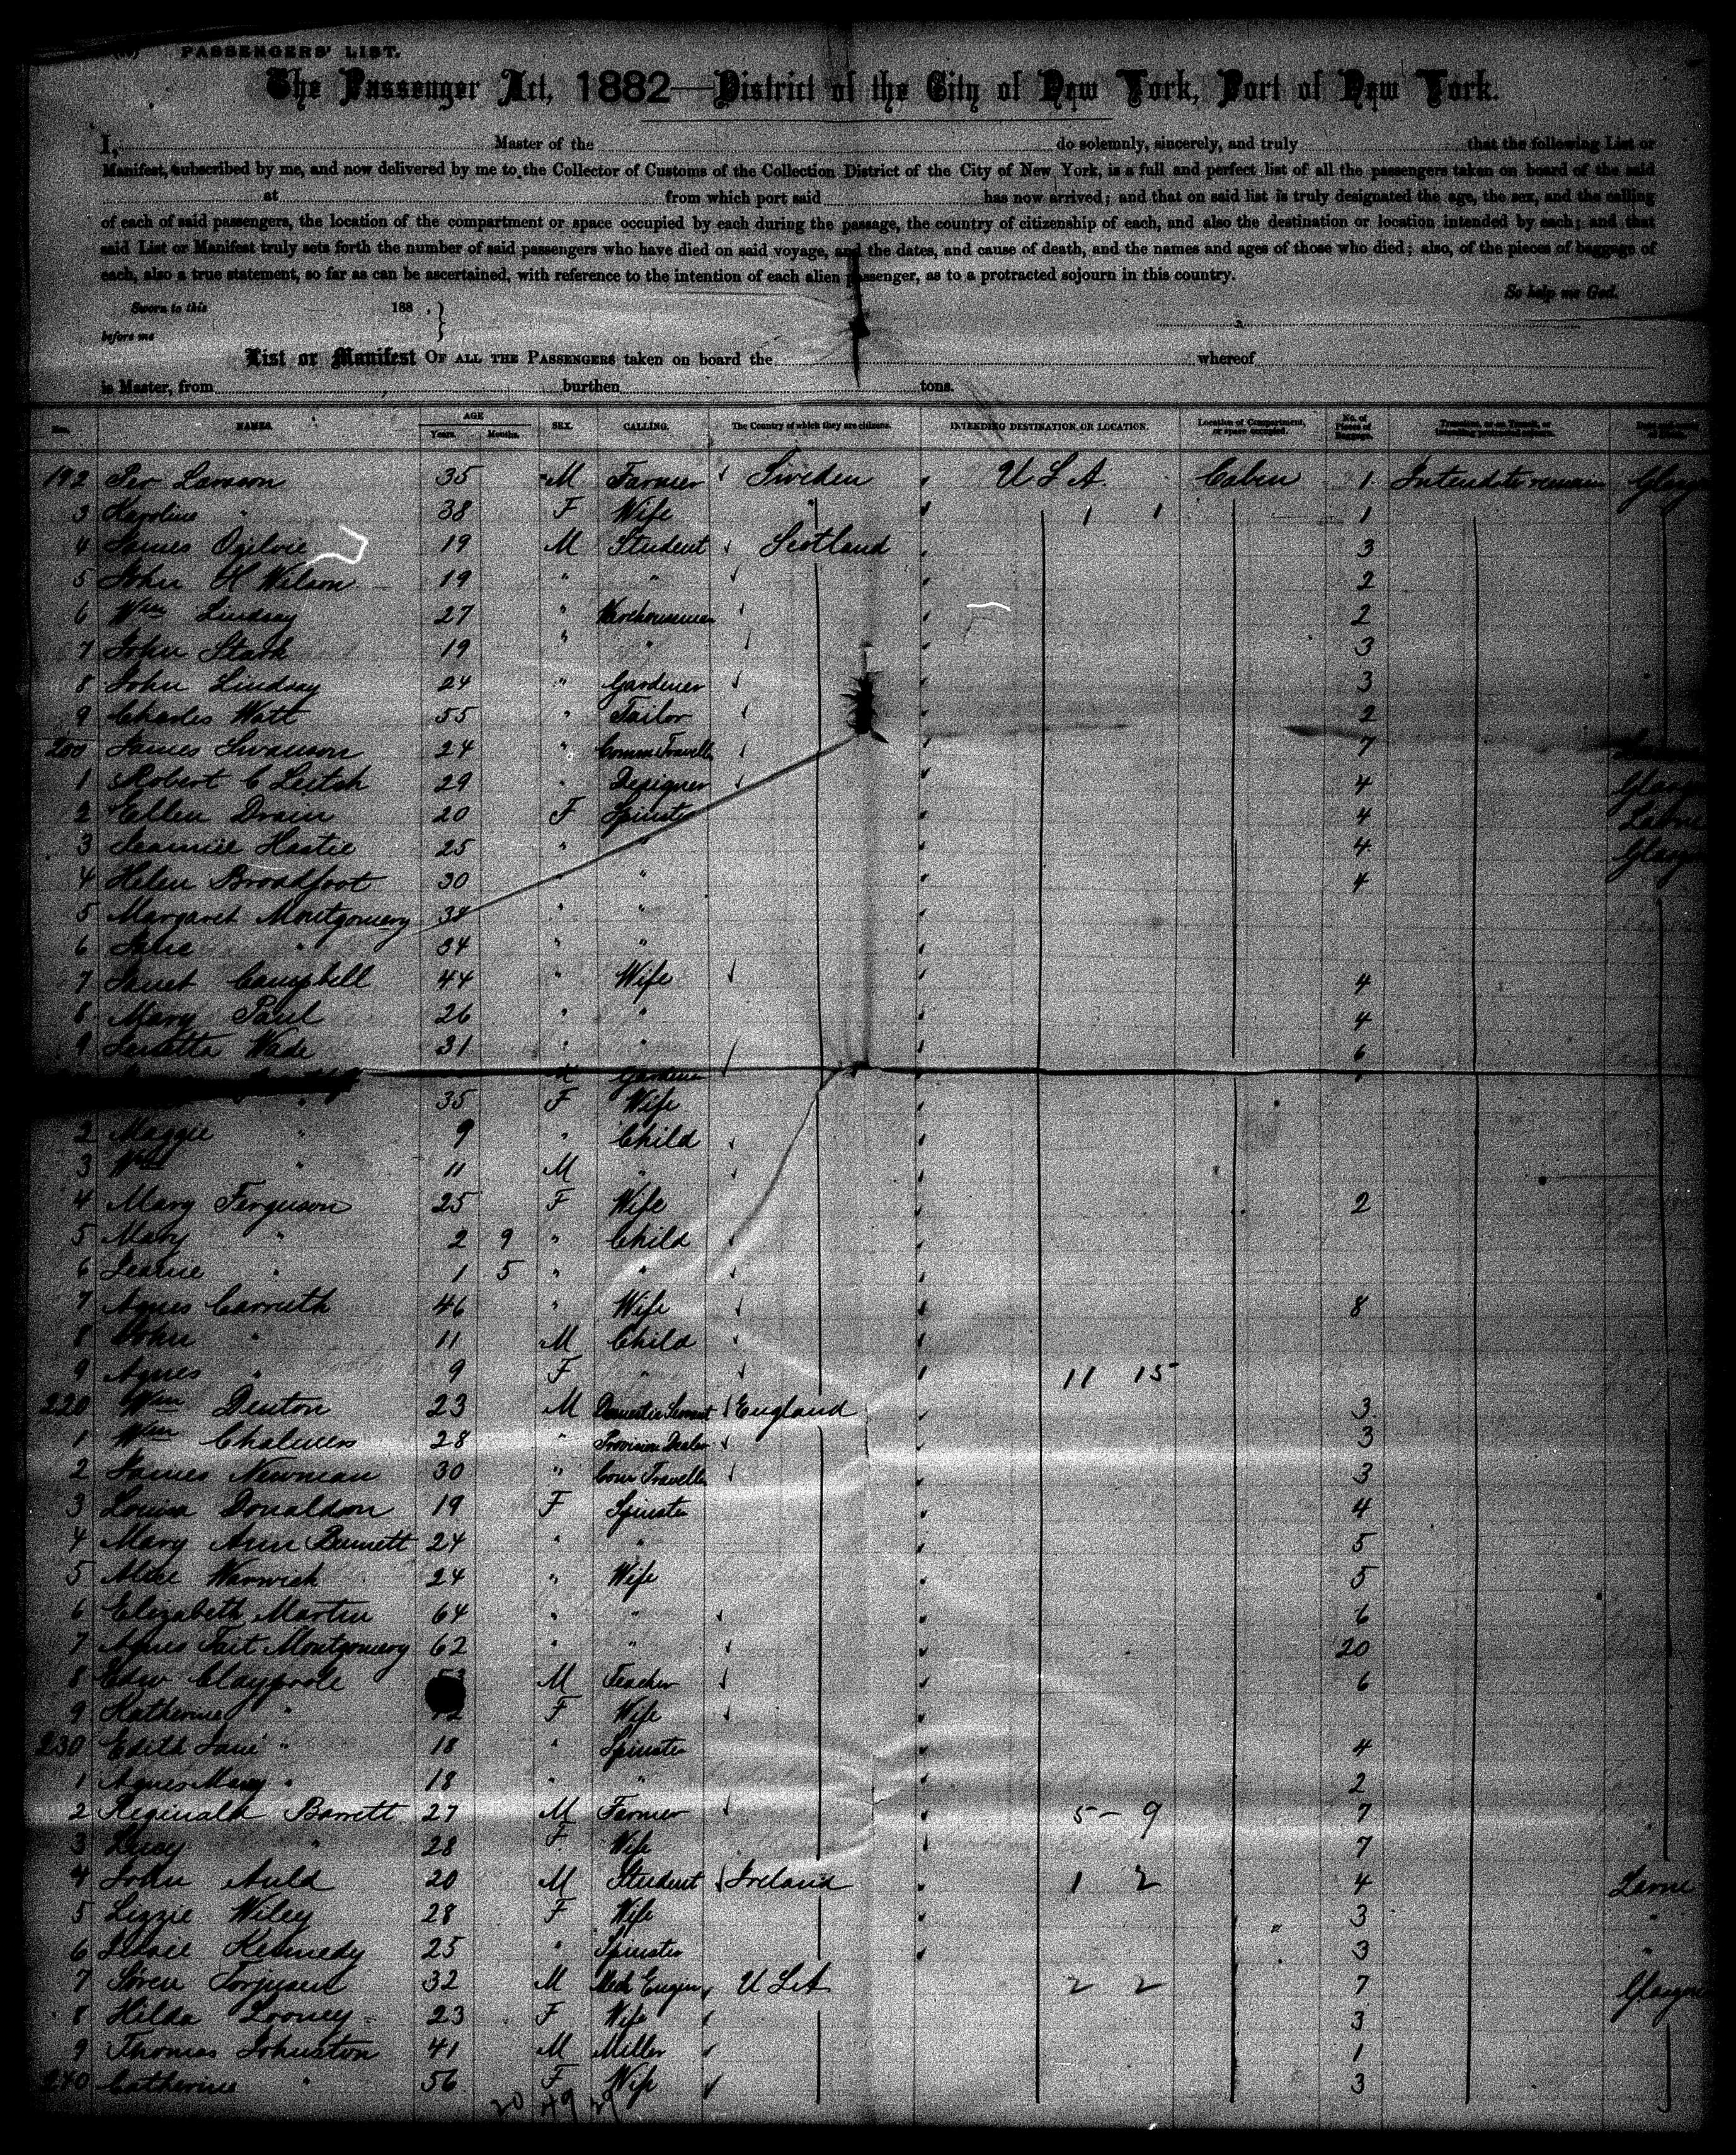 PASSENGERS' LIST.
The Passenger Act, 1882—District of the City of New York, Port of New York.
I, Master of the do solemnly, sincerely, and truly that the following List or
Manifest, subscribed by me, and now delivered by me to the Collector of Customs of the Collection District of the City of New York, is a full and perfect list of all the passengers taken on board of the said
at from which port said has now arrived; and that on said list is truly designated the age, the sex, and the calling
of each of said passengers, the location of the compartment or space occupied by each during the passage, the country of citizenship of each, and also the destination or location intended by each; and that
said List or Manifest truly sets forth the number of said passengers who have died on said voyage, and the dates, and cause of death, and the names and ages of those who died; also, of the pieces of baggage of
each, also a true statement, so far as can be ascertained, with reference to the intention of each alien passenger, as to a protracted sojourn in this country.
So help me God.
Sworn to this 188 .
before me
List or Manifest OF ALL THE PASSENGERS taken on board the whereof
is Master, from burthen tons.
Nos. NAMES. AGE Years. Months. SEX. CALLING. The Country of which they are citizens. INTENDING DESTINATION OR LOCATION. Location of Compartment, or space occupied. No. of Pieces of Baggage.
192 Per Larsson 35 M Farmer Sweden U S A. Cabin 1 Intend to remain
3 Karoline " 38 F Wife " 1 1 1
4 James Ogilvie 19 M Student Scotland 3
5 John H Wilson 19 " " 2
6 Wm Lindsay 27 " Warehouseman 2
7 John Stark 19 " " 3
8 John Lindsay 24 " Gardener 3
9 Charles Watt 55 " Tailor 2
200 James Swanson 24 " Comm Travellr 7
1 Robert C Leitch 29 " Designer 4
2 Ellen Drain 20 F Spinster 4
3 Hastie 25 " " 4
4 Helen Broadfoot 30 " " 4
5 Margaret Montgomery 34 " "
6 Jane " 34 " "
7 Janet Campbell 44 " Wife 4
8 Mary Paul 26 " " 4
9 Wade 31 " " 6
Gardener
" 35 F Wife
2 Maggie " 9 " Child
3 Wm " 11 M "
4 Mary Ferguson 25 F Wife 2
5 Mary " 2 9 " Child
6 Jeanie " 1 5 " "
7 Agnes Carruth 46 " Wife 8
8 John " 11 M Child
9 Agnes " 9 F " 11 15
220 Wm Denton 23 M Domestic Servant England 3
1 Wm Chalmers 28 " Provision Dealer 3
2 James Newman 30 " Com Travellr 3
3 Louisa Donaldson 19 F Spinster 4
4 Mary Ann Burnett 24 " " 5
5 Alice Warwick 24 " Wife 5
6 Elizabeth Martin 64 " " 6
7 Agnes Tait Montgomery 62 " " 20
8 Edw Claypole M Teacher 6
9 Katherine " F Wife
230 Edith Jane " 18 " Spinster 4
1 Agnes Mary " 18 " " 2
2 Reginald Barrett 27 M Farmer 5 - 9 7
3 Lucy " 28 F Wife 7
4 John Auld 20 M Student Ireland 1 2 4 Larne
5 Lizzie Wiley 28 F Wife " 3 "
6 Kennedy 25 " Spinster 3 "
7 Sören 32 M Mech Engin U S A 2 2 7
8 Hilda Looney 23 F Wife 3
9 Thomas Johnston 41 M Miller 1
240 Catherine " 56 F Wife 3
20 49 29